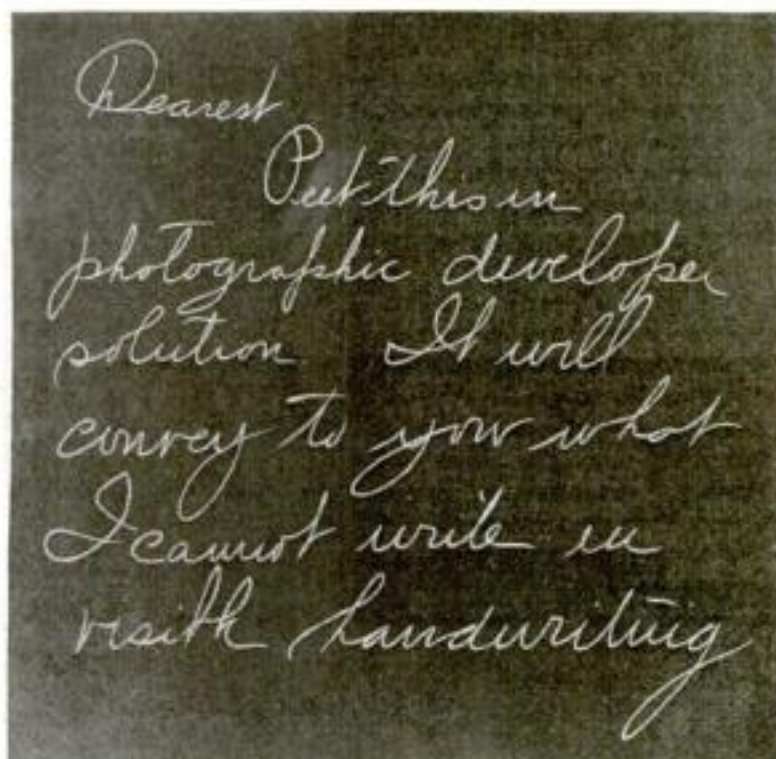 Dearest
Put this in
photographic developer
solution It will
convey to you what
I cannot write in
visible handwriting